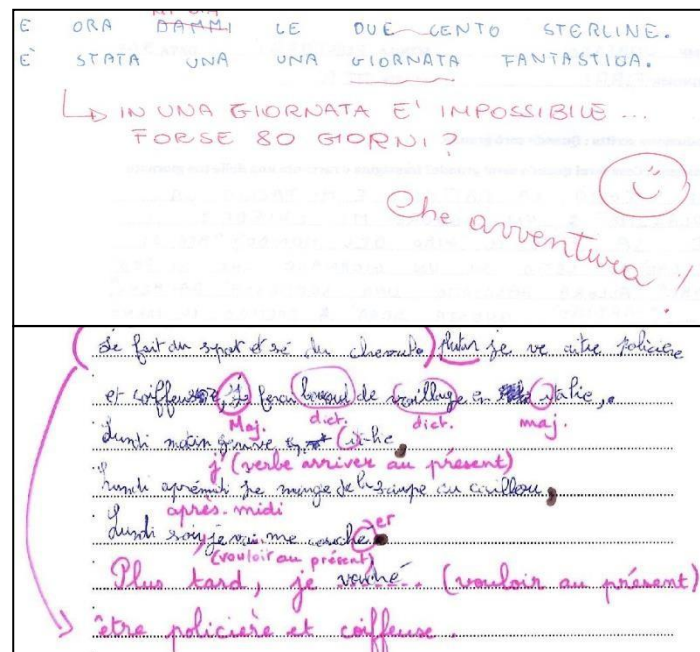 MI DIA
E ORA DAMMI LE DUE CENTO STERLINE.
E' STATA UNA UNA GIORNATA FANTASTICA.
IN UNA GIORNATA E' IMPOSSIBILE ...
FORSE 80 GIORNI?
Che avventura!
Je fait du spot et sé du
je ve aitre policiere
et coiffeuse, je feron de en italie,
Maj. dict. dict. maj.
Lundi matin
j' (verbe arriver au présent)
Lundi je mange de la soupe au caillou,
après-midi
Lundi soir je me couché
er
(vouloir au présent)
Plus tard, je (vouloir au présent)
être policière et coiffeuse.